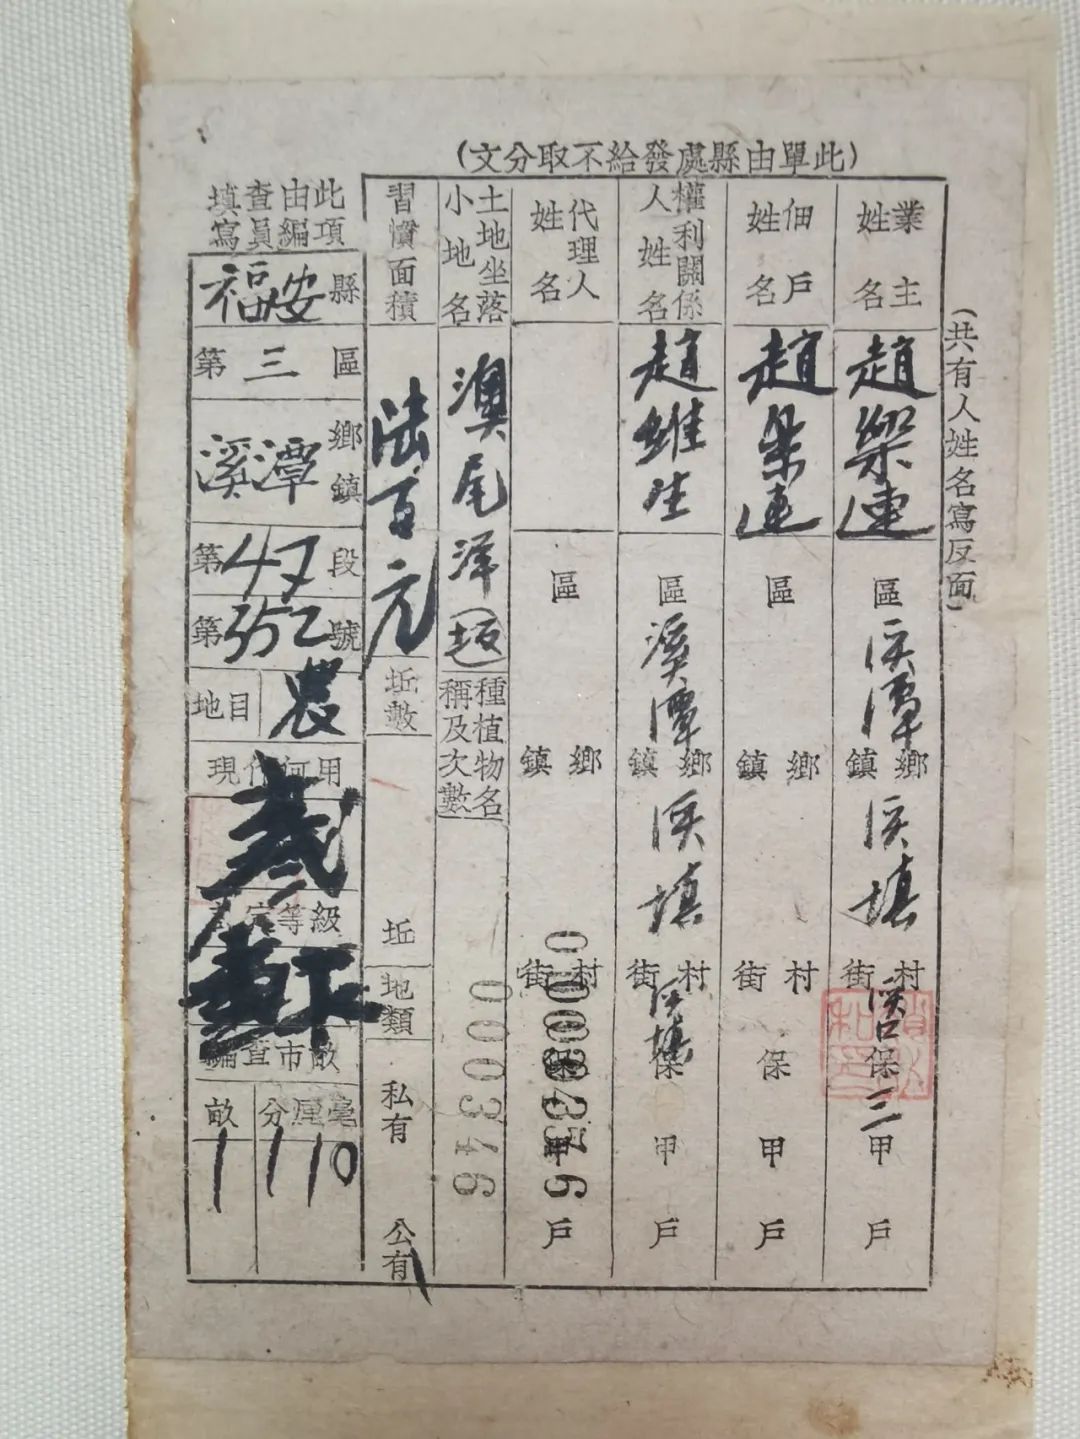 (此單由縣處發給不取分文)
(共有人姓名寫反面)
業主姓名
趙
連
區
溪潭
鄉鎮
溪填
村街
溪口
保
三
甲
戶
佃戶姓名
趙
連
區
鄉鎮
村街
保
甲
戶
權利關係人姓名
趙維生
區
溪潭
鄉鎮
溪填
村街
保
甲
戶
代理人姓名
區
鄉鎮
村街
甲
戶
土地坐落小地名
澳尾洋
種植物名稱及次數
000346
習慣面積
陸百元
坵數
坵
地類
私有
公有
此項由編查員填寫
福安縣
第三區
溪潭鄉鎮
第47段
第352號
地目
農
現作何用
等級
編查市畝
畝
分厘毫
1
1 1 0